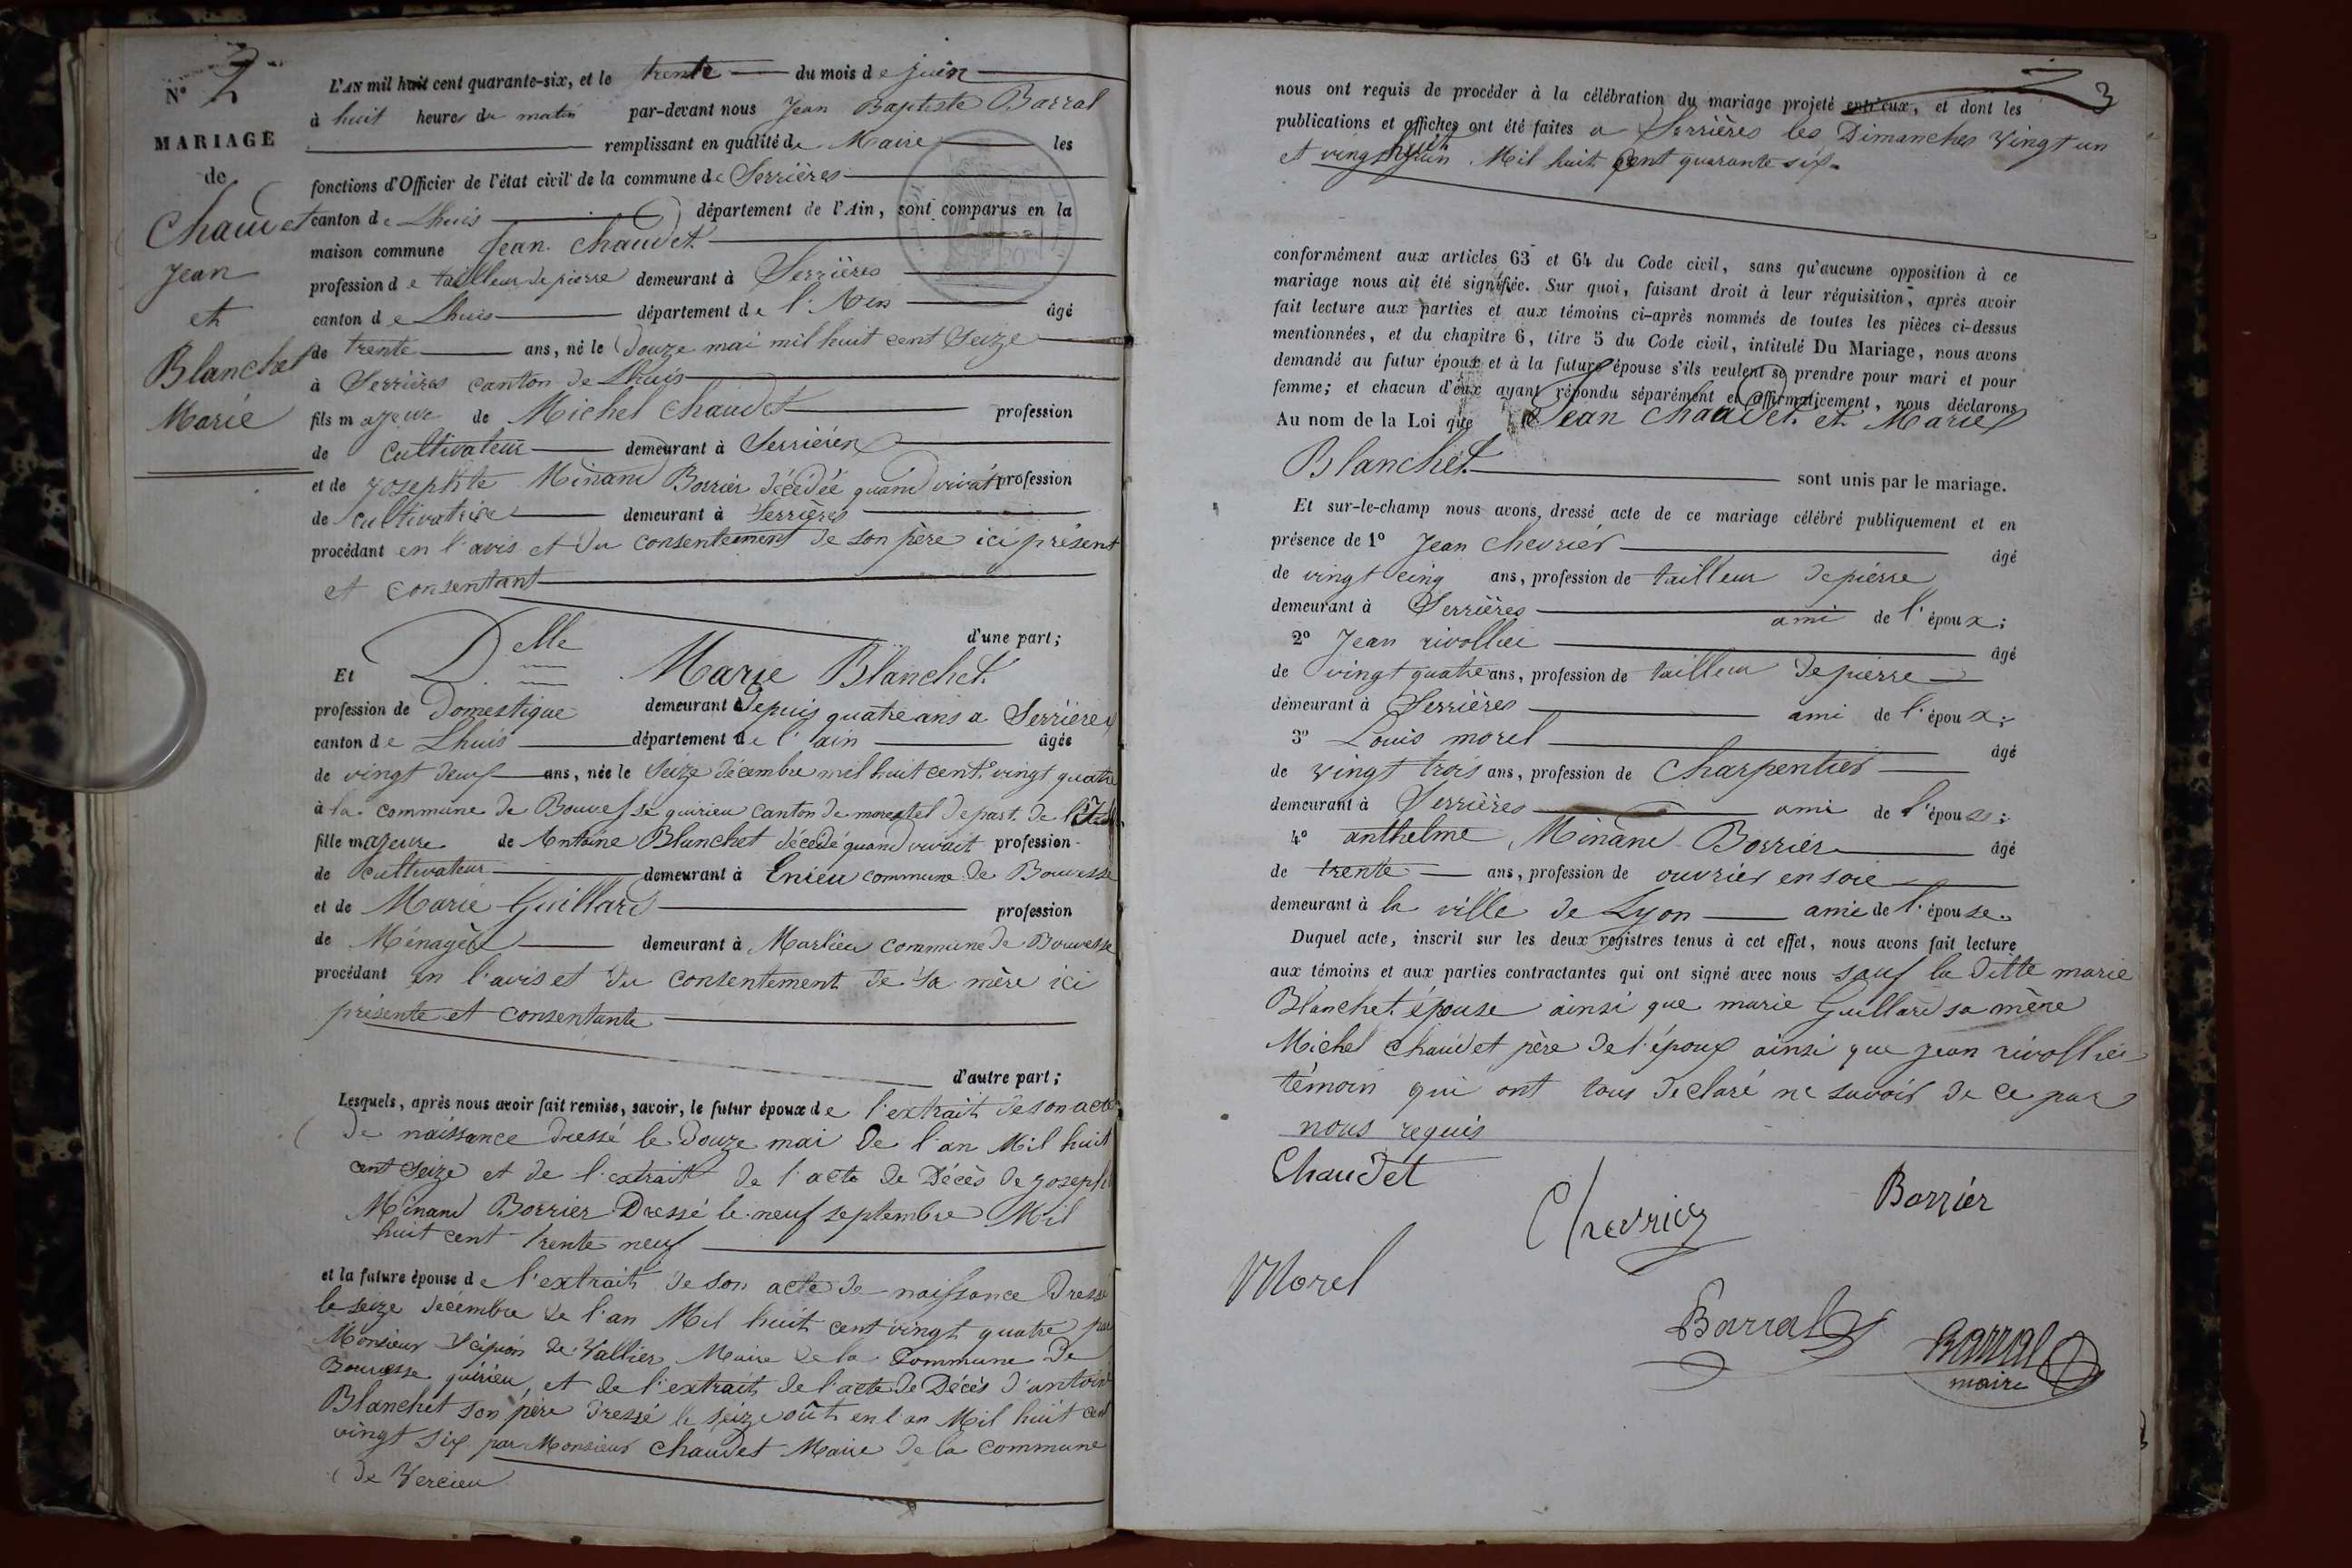 N° 2
MARIAGE
de
Chaudet
Jean
et
Blanchet
Marie
L'AN mil huit cent quarante-six, et le trente du mois de juin
à huit heures du matin par-devant nous Jean Baptiste Barral
remplissant en qualité de Maire les
fonctions d'Officier de l'état civil de la commune de Serrières
canton de Lhuis département de l'Ain, sont comparus en la
maison commune Jean Chaudet
profession de tailleur de pierre demeurant à Serrières
canton de Lhuis département de l'Ain âgé
de trente ans, né le Douze mai mil huit cent Seize
à Serrières canton de Lhuis
fils majeur de Michel Chaudet profession
de Cultivateur demeurant à Serrières
et de Josephte Minand Borrier décédée quand vivait profession
de Cultivatrice demeurant à Serrières
procédant en l'avis et du consentement de son père ici présent
et consentant
d'une part;
Et Delle Marie Blanchet
profession de Domestique demeurant à Depuis quatre ans a Serrières
canton de Lhuis département de l'ain âgée
de vingt deux ans, née le Seize décembre mil huit cent vingt quatre
à la commune de Bouvesse quirieu Canton de morestel depart. de l'Isère
fille majeure de Antoine Blanchet décédé quand vivait profession
de Cultivateur demeurant à Enieu commune de Bouvesse
et de Marie Guillard profession
de Ménagère demeurant à Marlieu commune de Bouvesse
procédant en l'avis et du consentement de sa mère ici
présente et consentante
d'autre part;
Lesquels, après nous avoir fait remise, savoir, le futur époux de l'extrait de son acte
de naissance dressé le Douze mai de l'an Mil huit
cent seize et de l'extrait de l'acte de Décès de Joseph
Minand Borrier Dressé le neuf septembre Mil
huit cent trente neuf
et la future épouse de l'extrait de son acte de naissance Dressé
le seize décembre de l'an Mil huit cent vingt quatre par
Monsieur Scipion de Vallier Maire de la Commune de
Bouvesse quirieu, et de l'extrait de l'acte de Décès d'antoine
Blanchet son père dressé le seize oût en l'an Mil huit cent
vingt six par Monsieur Chaudet Maire de la Commune
de Vercieu
2 3
nous ont requis de procéder à la célébration du mariage projeté entr'eux, et dont les
publications et affiches ont été faites a Serrières les Dimanches Vingt un
et vingt huit juin Mil huit cent quarante six
conformément aux articles 63 et 64 du Code civil, sans qu'aucune opposition à ce
mariage nous ait été signifiée. Sur quoi, faisant droit à leur réquisition, après avoir
fait lecture aux parties et aux témoins ci-après nommés de toutes les pièces ci-dessus
mentionnées, et du chapitre 6, titre 5 du Code civil, intitulé Du Mariage, nous avons
demandé au futur époux et à la future épouse s'ils veulent se prendre pour mari et pour
femme; et chacun d'eux ayant répondu séparément et affirmativement, nous déclarons
Au nom de la Loi que Jean Chaudet et Marie
Blanchet sont unis par le mariage.
Et sur-le-champ nous avons dressé acte de ce mariage célébré publiquement et en
présence de 1° Jean Chevrier âgé
de vingt cinq ans, profession de tailleur de pierre
demeurant à Serrières ami de l'époux;
2° Jean rivollier âgé
de vingt quatre ans, profession de tailleur de pierre
demeurant à Serrières ami de l'époux;
3° Louis morel âgé
de vingt trois ans, profession de Charpentier
demeurant à Serrières ami de l'épouse;
4° anthelme Minand Borrier âgé
de trente ans, profession de ouvrier en soie
demeurant à la ville de Lyon ami de l'épouse.
Duquel acte, inscrit sur les deux registres tenus à cet effet, nous avons fait lecture
aux témoins et aux parties contractantes qui ont signé avec nous sauf la ditte marie
Blanchet épouse ainsi que marie Guillard sa mère
Michel Chaudet père de l'époux ainsi que jean rivollier
témoin qui ont tous déclaré ne savoir de ce par
nous requis
Chaudet
Chevrier
Borrier
Morel
Barral
Barral
maire